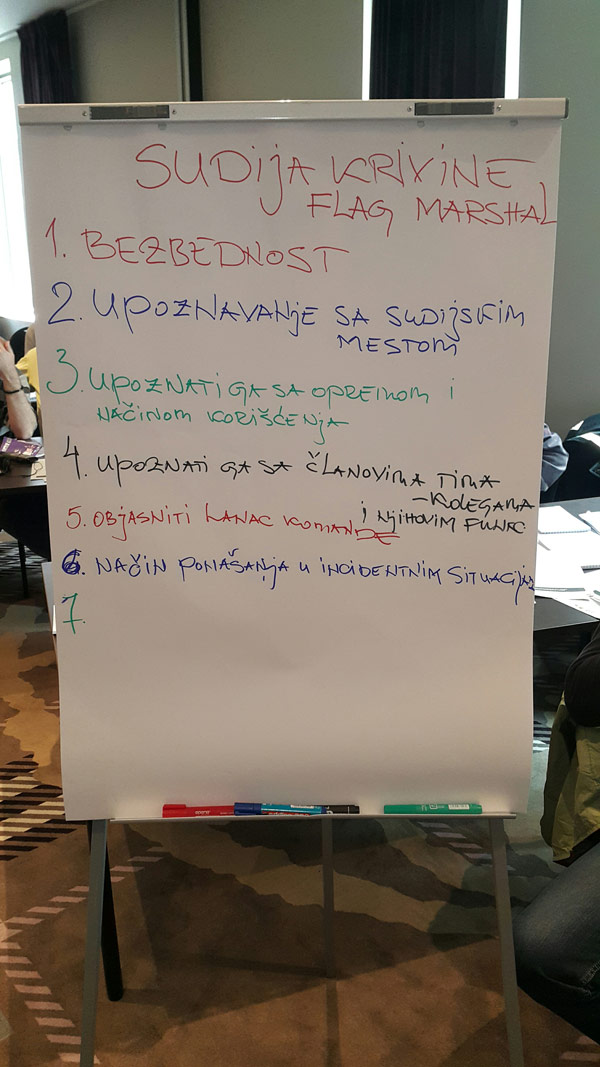 SUDIJA KRIVINE
FLAG MARSHAL
1. BEZBEDNOST
2. UPOZNAVANJE SA SUDIJSKIM
MESTOM
3. UPOZNATI GA SA OPREMOM I
NAČINOM KORIŠĆENJA
4. UPOZNATI GA SA ČLANOVIMA TIMA
- KOLEGAMA
I NJIHOVIM FUNKC
5. OBJASNITI LANAC KOMANDE
6. NAČIN PONAŠANJA U INCIDENTNIM SITUACIJAMA
7.